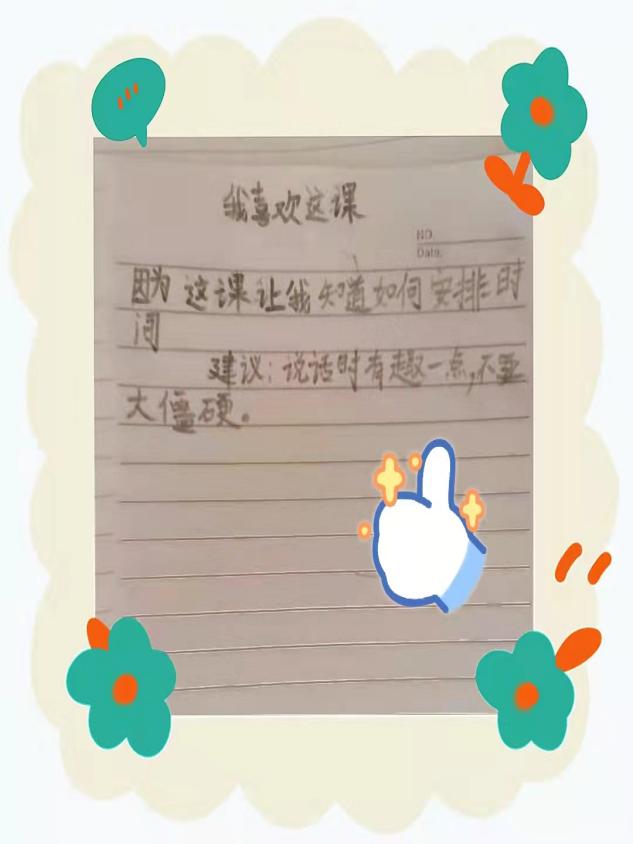 我喜欢这课
NO.
Date.
因为这课让我知道如何安排时
间
建议：说话时有趣一点,不要
大僵硬。